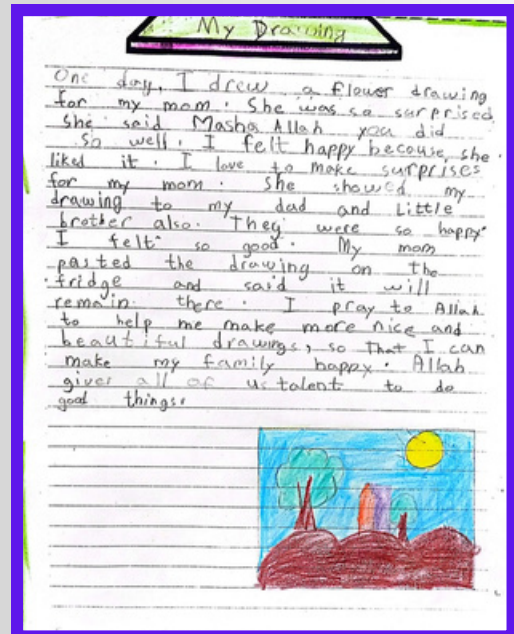 My Drawing
One day, I drew a flower drawing
for my mom. She was so surprised
She said Masha Allah you did
so well. I felt happy because, she
liked it. I love to make surprises
for my mom. She showed my
drawing to my dad and Little
brother also. They were so happy.
I felt so good. My mom
pasted the drawing on the
fridge and said it will
remain there. I pray to Allah
to help me make more nice and
beautiful drawings, so That I can
make my family happy. Allah
gives all of us talent to do
good things.